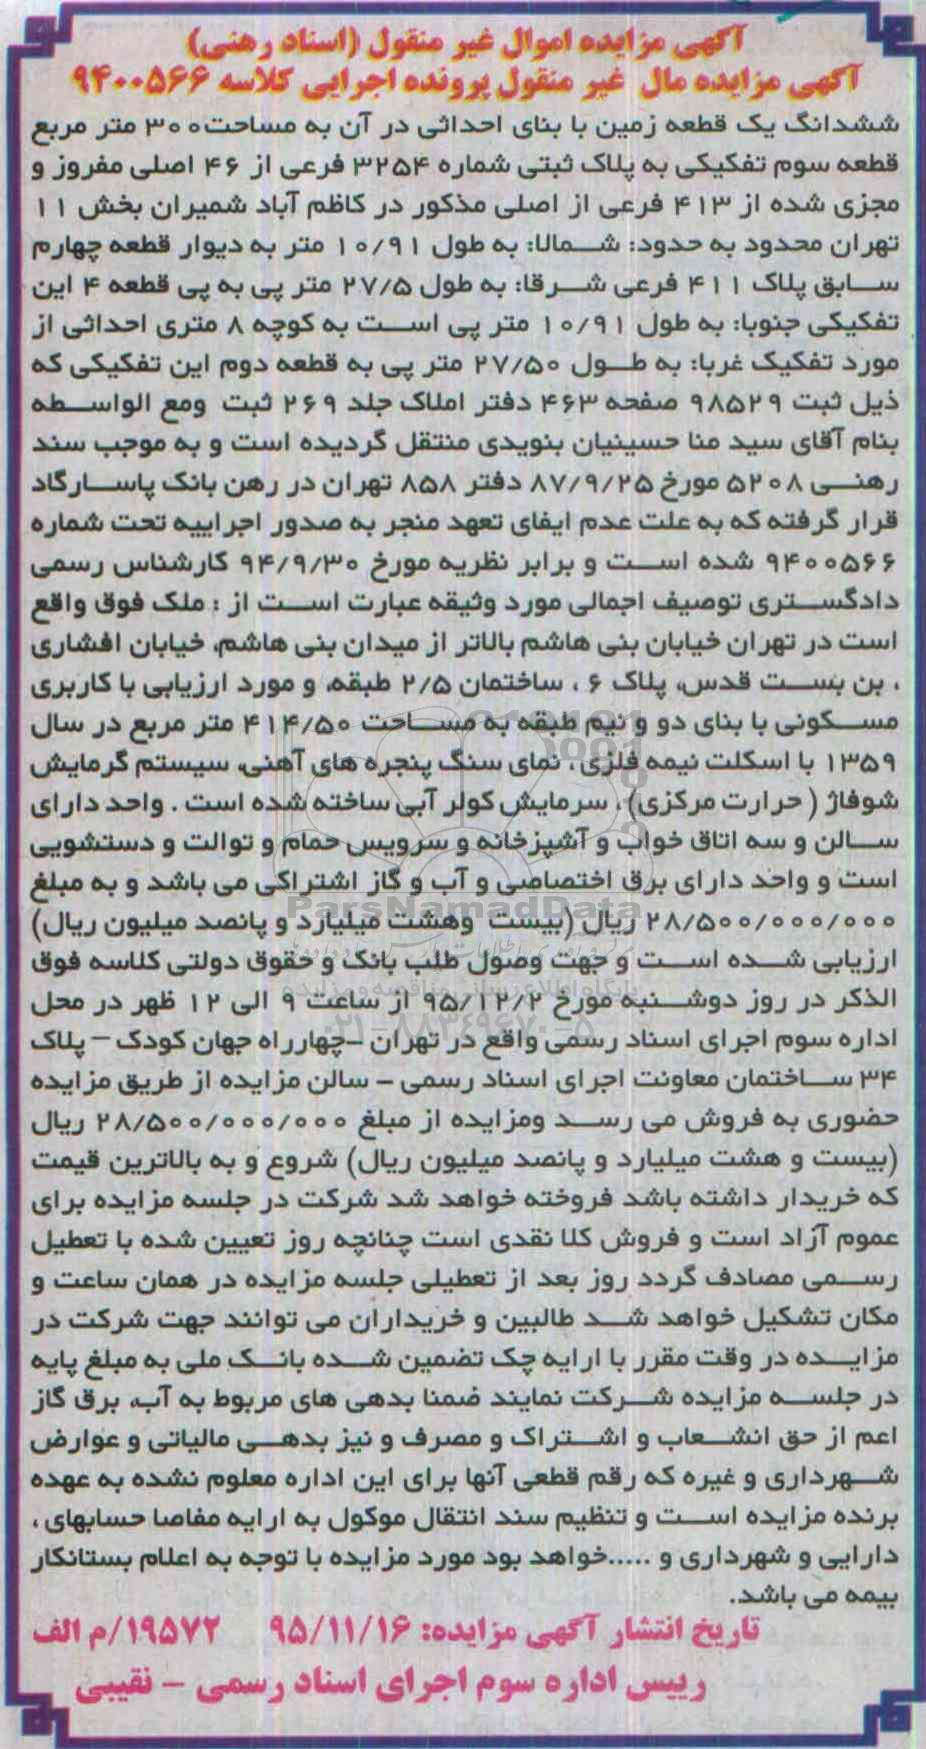 آگهی مزایده اموال غیر منقول (اسناد رهنی)
آگهی مزایده مال غیر منقول پرونده اجرایی کلاسه ۹۴۰۰۵۶۶
ششدانگ یک قطعه زمین با بنای احداثی در آن به مساحت۳۰۰ متر مربع
قطعه سوم تفکیکی به پلاک ثبتی شماره ۳۲۵۴ فرعی از ۴۶ اصلی مفروز و
مجزی شده از ۴۱۳ فرعی از اصلی مذکور در کاظم آباد شمیران بخش ۱۱
تهران محدود به حدود: شمالا: به طول ۱۰/۹۱ متر به دیوار قطعه چهارم
سابق پلاک ۴۱۱ فرعی شرقا: به طول ۲۷/۵ متر پی به پی قطعه ۴ این
تفکیکی جنوبا: به طول ۱۰/۹۱ متر پی است به کوچه ۸ متری احداثی از
مورد تفکیک غربا: به طول ۲۷/۵۰ متر پی به قطعه دوم این تفکیکی که
ذیل ثبت ۹۸۵۲۹ صفحه ۴۶۳ دفتر املاک جلد ۲۶۹ ثبت ومع الواسطه
بنام آقای سید منا حسینیان بنویدی منتقل گردیده است و به موجب سند
رهنی ۵۲۰۸ مورخ ۸۷/۹/۲۵ دفتر ۸۵۸ تهران در رهن بانک پاسارگاد
قرار گرفته که به علت عدم ایفای تعهد منجر به صدور اجراییه تحت شماره
۹۴۰۰۵۶۶ شده است و برابر نظریه مورخ ۹۴/۹/۳۰ کارشناس رسمی
دادگستری توصیف اجمالی مورد وثیقه عبارت است از : ملک فوق واقع
است در تهران خیابان بنی هاشم بالاتر از میدان بنی هاشم، خیابان افشاری
، بن بست قدس، پلاک ۶ ، ساختمان ۲/۵ طبقه، و مورد ارزیابی با کاربری
مسکونی با بنای دو و نیم طبقه به مساحت ۴۱۴/۵۰ متر مربع در سال
۱۳۵۹ با اسکلت نیمه فلزی ، نمای سنگ پنجره های آهنی، سیستم گرمایش
شوفاژ ( حرارت مرکزی) ، سرمایش کولر آبی ساخته شده است . واحد دارای
سالن و سه اتاق خواب و آشپزخانه و سرویس حمام و توالت و دستشویی
است و واحد دارای برق اختصاصی و آب و گاز اشتراکی می باشد و به مبلغ
۲۸/۵۰۰/۰۰۰/۰۰۰ ریال (بیست وهشت میلیارد و پانصد میلیون ریال)
ارزیابی شده است و جهت وصول طلب بانک و حقوق دولتی کلاسه فوق
الذکر در روز دوشنبه مورخ ۹۵/۱۲/۲ از ساعت ۹ الی ۱۲ ظهر در محل
اداره سوم اجرای اسناد رسمی واقع در تهران –چهارراه جهان کودک – پلاک
۳۴ ساختمان معاونت اجرای اسناد رسمی – سالن مزایده از طریق مزایده
حضوری به فروش می رسد ومزایده از مبلغ ۲۸/۵۰۰/۰۰۰/۰۰۰ ریال
(بیست و هشت میلیارد و پانصد میلیون ریال) شروع و به بالاترین قیمت
که خریدار داشته باشد فروخته خواهد شد شرکت در جلسه مزایده برای
عموم آزاد است و فروش کلا نقدی است چنانچه روز تعیین شده با تعطیل
رسمی مصادف گردد روز بعد از تعطیلی جلسه مزایده در همان ساعت و
مکان تشکیل خواهد شد طالبین و خریداران می توانند جهت شرکت در
مزایده در وقت مقرر با ارایه چک تضمین شده بانک ملی به مبلغ پایه
در جلسه مزایده شرکت نمایند ضمنا بدهی های مربوط به آب، برق گاز
اعم از حق انشعاب و اشتراک و مصرف و نیز بدهی مالیاتی و عوارض
شهرداری و غیره که رقم قطعی آنها برای این اداره معلوم نشده به عهده
برنده مزایده است و تنظیم سند انتقال موکول به ارایه مفاصا حسابهای ،
دارایی و شهرداری و .....خواهد بود مورد مزایده با توجه به اعلام بستانکار
بیمه می باشد.
تاریخ انتشار آگهی مزایده: ۹۵/۱۱/۱۶ ۱۹۵۷۲/م الف
رییس اداره سوم اجرای اسناد رسمی – نقیبی
ParsNamadData
۰۲۱-۸۸۳۴۹۶۷۰-۵